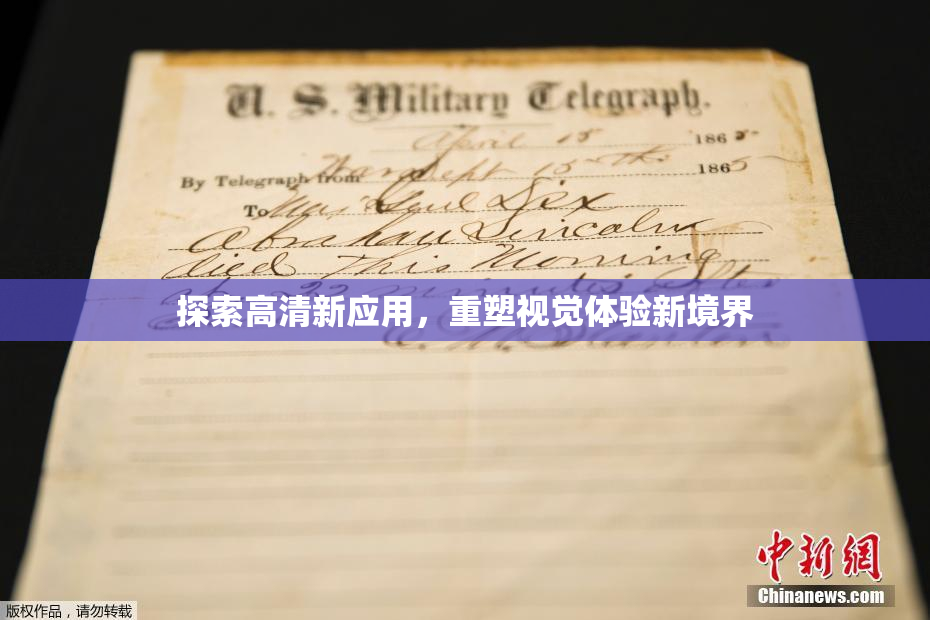 U. S. Military Telegraph.
April 15 1865
By Telegraph from War Dept 15th 1865
To Maj Genl Dix
Abraham Lincoln
died This Morning
at 22 minutes after
探索高清新应用，重塑视觉体验新境界
E. M. Stanton
中新網
Chinanews.com
版权作品，请勿转载